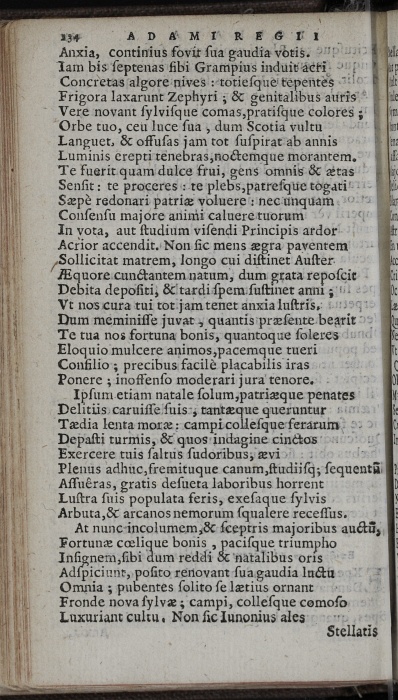 234 ADAMI REGII
Anxia, continius fovit sua gaudia votis.
Iam bis septenas sibi Grampius induit acri
Concretas algore nives : totiesque tepentes
Frigora laxarunt Zephyri ; & genitalibus auris
Vere novant sylvisque comas, pratisque colores ;
Orbe tuo, ceu luce sua , dum Scotia vultu
Languet, & offusas jam tot suspirat ab annis
Luminis erepti tenebras, noctemque morantem.
Te fuerit quam dulce frui, gens omnis & ætas
Sensit : te proceres : te plebs, patresque togati
Sæpè redonari patriæ voluere : nec unquam
Consensu majore animi caluere tuorum
In vota, aut studium visendi Principis ardor
Acrior accendit. Non sic mens ægra paventem
Sollicitat matrem, longo cui distinet Auster
Æquore cunctantem natum, dum grata reposcit
Debita depositi, & tardi spem sustinet anni ;
Vt nos cura tui tot jam tenet anxia lustris.
Dum meminisse juvat , quantis præsente bearit
Te tua nos fortuna bonis, quantoque soleres
Eloquio mulcere animos, pacemque tueri
Consilio ; precibus facilè placabilis iras
Ponere ; inoffenso moderari jura tenore.
Ipsum etiam natale solum, patriæque penates
Delitiis caruisse suis , tantæque queruntur
Tædia lenta moræ : campi collesque ferarum
Depasti turmis, & quos indagine cinctos
Exercere tuis saltus sudoribus, ævi
Plenus adhuc, fremituque canum, studiisq; sequentū
Assuêras, gratis desueta laboribus horrent
Lustra suis populata feris, exesaque sylvis
Arbuta, & arcanos nemorum squalere recessus.
At nunc incolumem, & sceptris majoribus auctū,
Fortunæ cœlique bonis , pacisque triumpho
Insignem, sibi dum reddi & natalibus oris
Adspiciunt, posito renovant sua gaudia luctu
Omnia ; pubentes solito se lætius ornant
Fronde nova sylvæ ; campi, collesque comoso
Luxuriant cultu. Non sic Iunonius ales
Stellatis